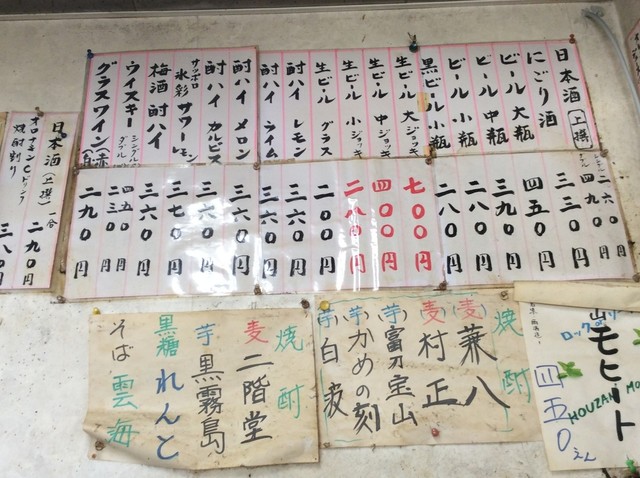 日本酒（上撰）
にごり酒
ビール 大瓶
ビール 中瓶
ビール 小瓶
黒ビール 小瓶
生ビール 大ジョッキ
生ビール 中ジョッキ
生ビール 小ジョッキ
生ビール グラス
酎ハイ レモン
酎ハイ ライム
酎ハイ メロン
酎ハイ カルピス
サッポロ 氷彩サワーレモン
梅酒 酎ハイ
ウイスキー シングル ダブル
グラスワイン 赤
二六〇円
四九〇円
三三〇円
四五〇円
三九〇円
二八〇円
二八〇円
七〇〇円
四〇〇円
二八〇円
二〇〇円
三六〇円
三六〇円
三六〇円
三六〇円
三七〇円
三六〇円
四五〇円
二三〇円
二九〇円
日本酒（上撰）一合 二九〇円
オロナミンCドリンク
焼酎割り 三八〇円
焼酎
（麦）兼八
（麦）村正
（芋）富乃宝山
（芋）かめの刻
（芋）白波
焼酎
麦 二階堂
芋 黒霧島
黒糖 れんと
そば 雲海
ロック
山モヒート
HOUZAN MO
四五〇えん